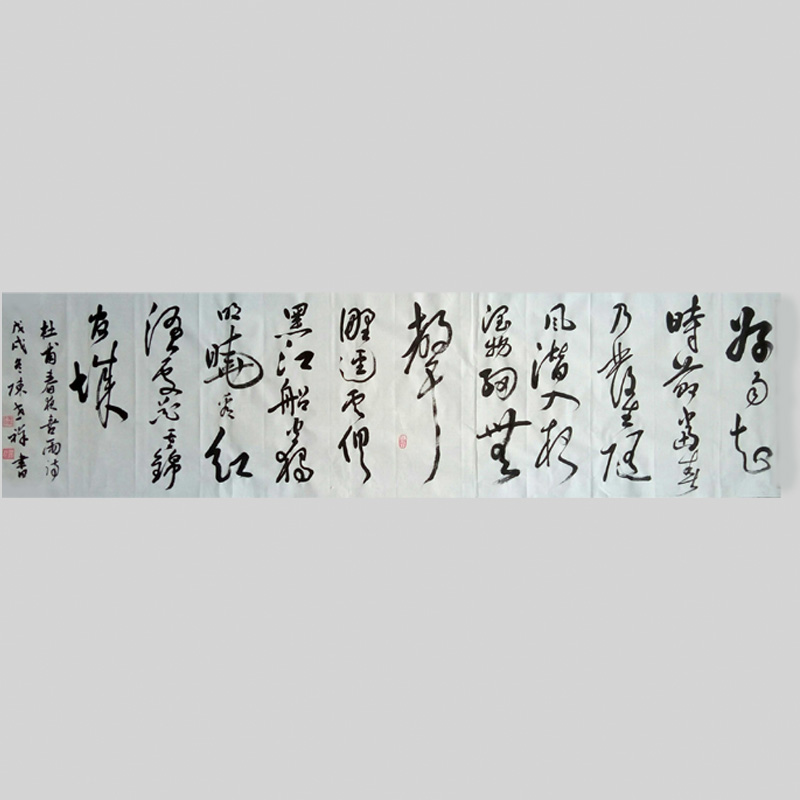 好雨知
時節當春
乃發生隨
風潛入夜
潤物細無
聲
野逕雲俱
黑江船火獨
明曉看紅
濕處花重錦
官城
杜甫春夜喜雨詩
戊戌冬陳祥書